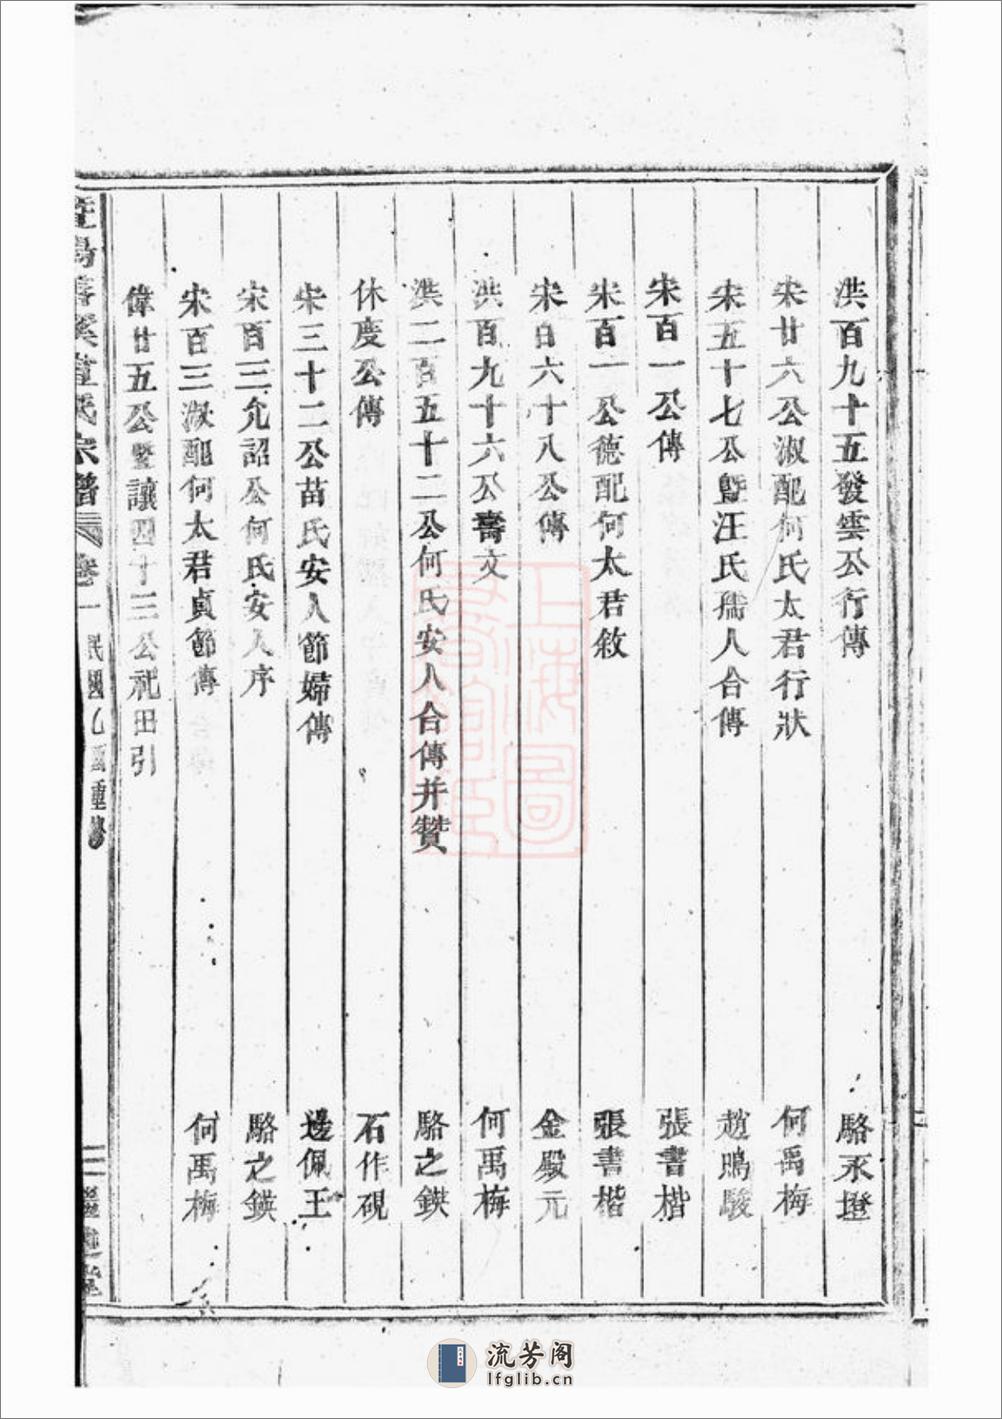 洪百九十五發雲公行傳 駱永墱
宋廿六公淑配何氏太君行狀 何禹梅
宋五十七公暨汪氏孺人合傳 趙鵬駿
宋百一公傳 張書楷
宋百一公德配何太君敘 張書楷
宋百六十八公傳 金殿元
洪百九十六公壽文 何禹梅
洪二百五十二公何氏安人合傳并贊 駱之鍈
休度公傳 石作硯
宋三十二公苗氏安人節婦傳 邊佩玉
宋百三允詔公何氏安人序 駱之鍈
宋百三淑配何太君貞節傳 何禹梅
偉廿五公暨讓四十三公祀田引
氏宗譜 卷一 民國 重修
上海圖
流芳阁
lfglib.cn